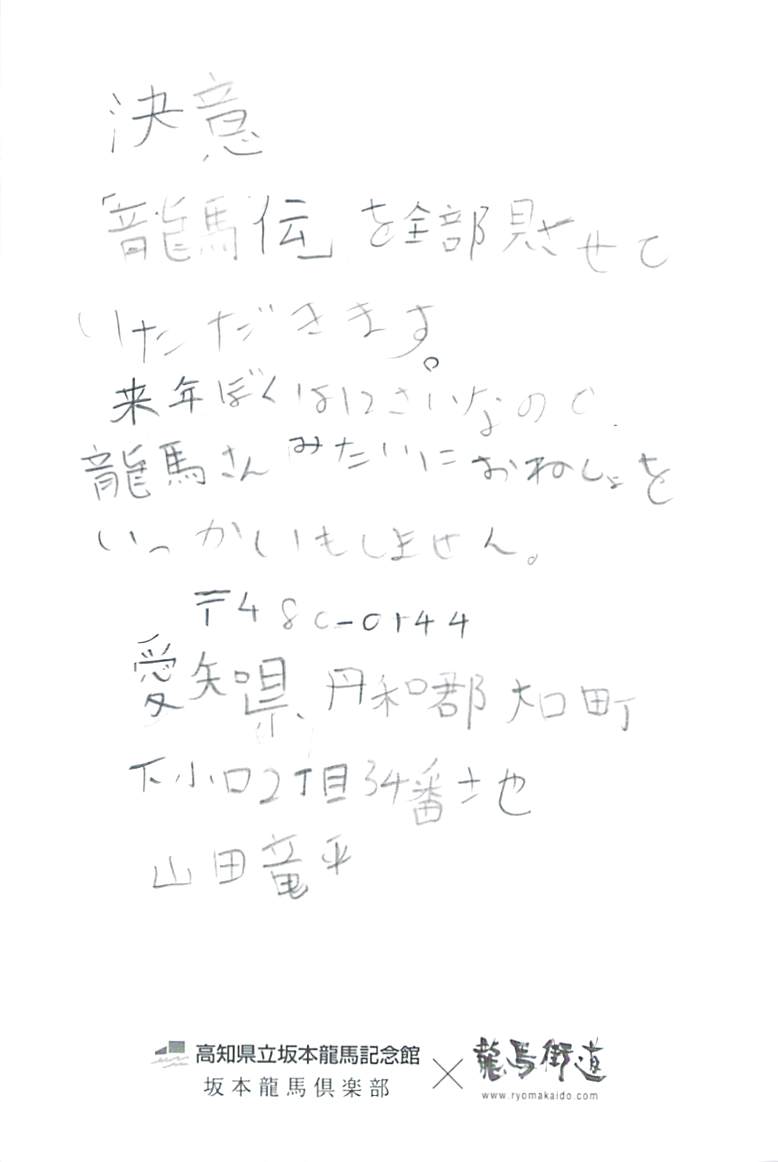 決意
「龍馬伝」を全部見させて
いただきます。
来年ぼくは12さいなので、
龍馬さんみたいにおねしょを
いっかいもしません。
〒480-0144
愛知県、丹和郡大口町
下小口2丁目34番土也
山田竜平
高知県立坂本龍馬記念館
坂本龍馬倶楽部
×
龍馬街道
www.ryomakaido.com